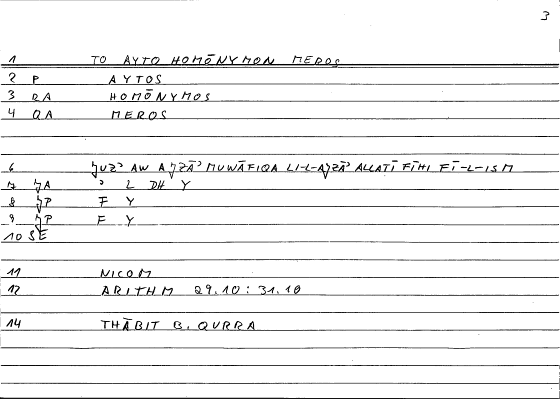 3
1 TO AYTO HOMŌNYMON MEROS
2 P AYTOS
3 QA HOMŌNYMOS
4 QA MEROS
6 ǦUZʾ AW AǦZĀʾ MUWĀFIQA LI-L-AǦZĀʾ ALLATĪ FĪHI FĪ-L-ISM
7 ǦA ʾ L DH Y
8 ǦP F Y
9 ǦP F Y
10 SE
11 NICOM
12 ARITHM 29.10 : 31.18
14 THĀBIT B. QURRA